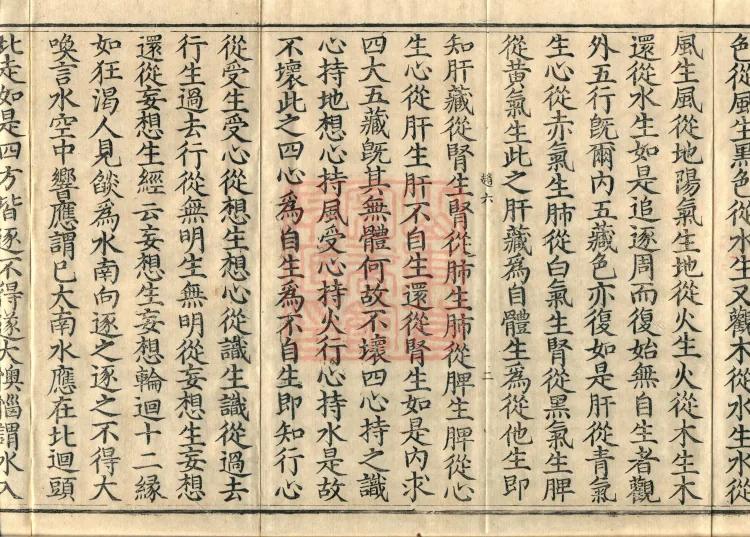 色從風生黑色從水生又觀木從水生水從
風生風從地陽氣生地從火生火從木生木
還從水生如是追逐周而復始無自生者觀
外五行旣爾內五藏色亦復如是肝從青氣
生心從赤氣生肺從白氣生腎從黑氣生脾
從黃氣生此之肝藏爲自體生爲從他生即
趙六
二
知肝藏從腎生腎從肺生肺從脾生脾從心
生心從肝生肝不自生還從腎生如是內求
四大五藏旣其無體何故不壞四心持之識
心持地想心持風受心持火行心持水是故
不壞此之四心爲自生爲不自生即知行心
從受生受心從想生想心從識生識從過去
行生過去行從無明生無明從妄想生妄想
還從妄想生經云妄想生妄想輪迴十二緣
如狂渴人見燄爲水南向逐之逐之不得大
喚言水空中響應謂巳大南水應在北迴頭
北走如是四方皆逐不得遂大懊惱謂水入